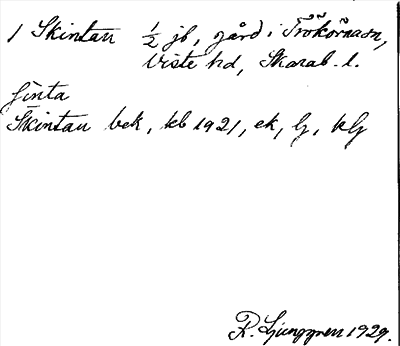 1 Skintan ½ jb, gård i Trökörna sn,
Viste hd, Skarab. l.
ſinta
Skintan bek, kb 1921, ek, lj, klj
R. Ljunggren 1929.